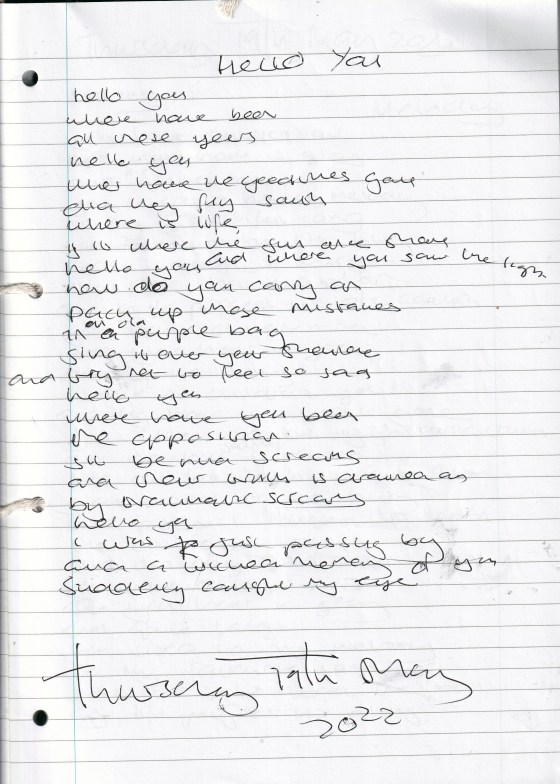 Hello You
hello you
where have been
all these years
hello you
wher have the goodtimes gone
did they fly south
where is life
is it where the sun once shone
and where you saw the light
hello you
how do you carry on
pack up those mistakes
in an old purple bag
sling it over your shoulder
and try not to feel so sad
hello you
where have you been
the opposition
sit behind screens
and their truth is drowned on
by traumatic screams
hello you
i was just passing by
and a wicked memory of you
suddenly caught my eye
Thursday 19th May
2022